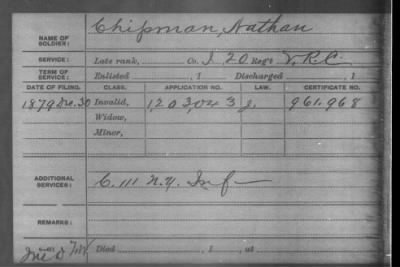 NAME OF SOLDIER: Chipman, Nathan
SERVICE: Late rank, Co. I, 20 Reg't V.R.C.
TERM OF SERVICE: Enlisted , 1 Discharged , 1
DATE OF FILING. CLASS. APPLICATION NO. LAW. CERTIFICATE NO.
1879 Dec. 30 Invalid, 1,203,043 961.968
Widow,
Minor,
ADDITIONAL SERVICES: C. 111 N.Y. Inf
REMARKS:
Died , 1 , at